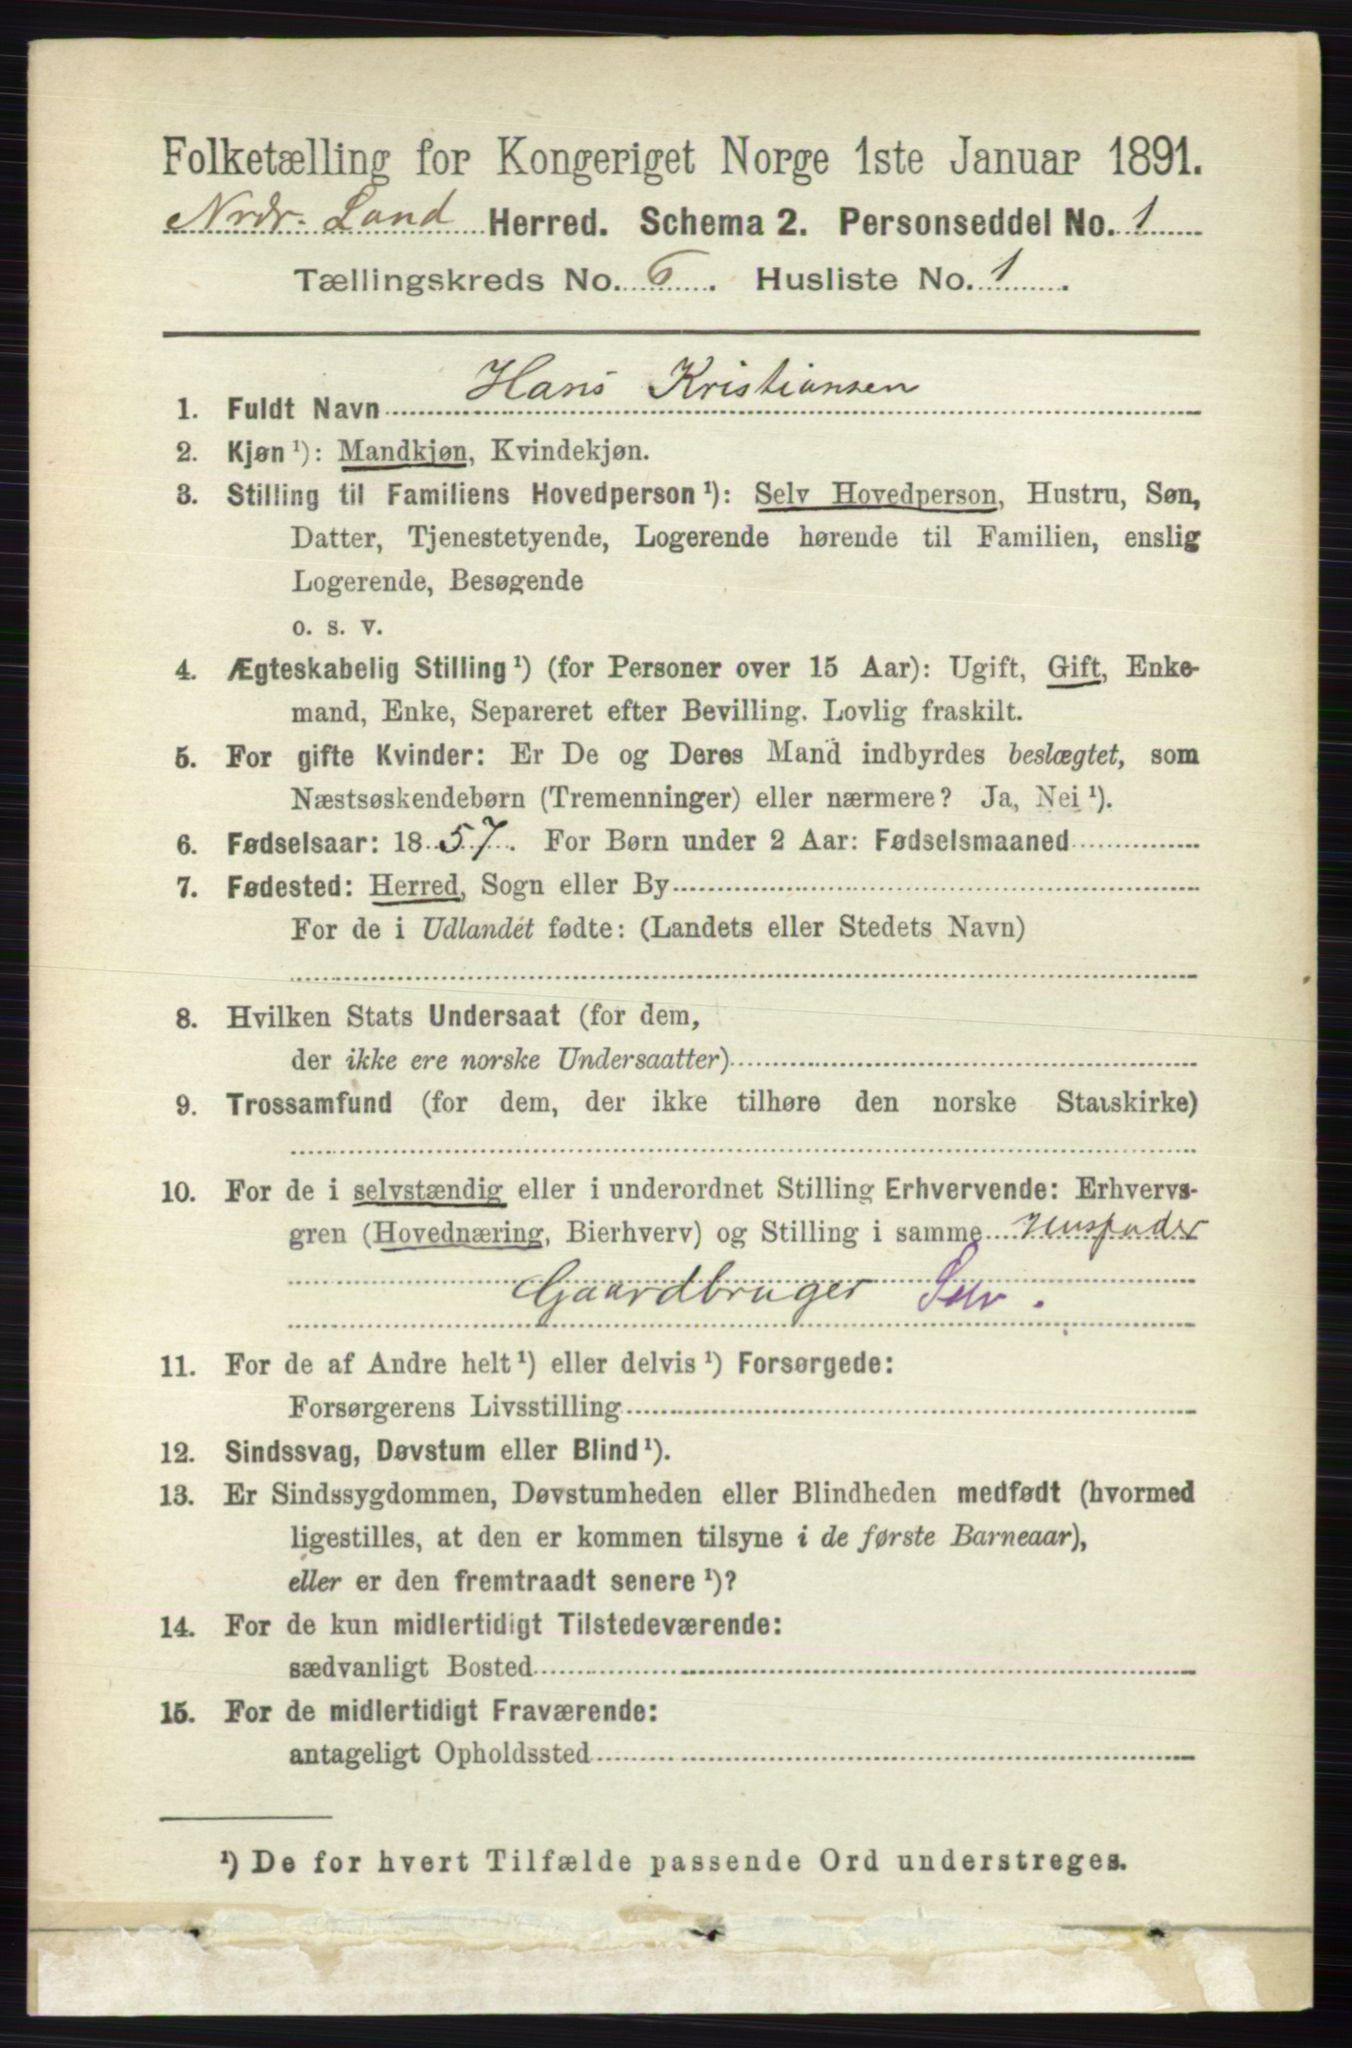 Folketælling for Kongeriget Norge 1ste Januar 1891.
Nrdr. Land Herred. Schema 2. Personseddel No. 1
Tællingskreds No. 6. Husliste No. 1.
1. Fuldt Navn Hans Kristiansen
2. Kjøn ¹): Mandkjøn, Kvindekjøn.
3. Stilling til Familiens Hovedperson ¹): Selv Hovedperson, Hustru, Søn,
Datter, Tjenestetyende, Logerende hørende til Familien, enslig
Logerende, Besøgende
o. s. v.
4. Ægteskabelig Stilling ¹) (for Personer over 15 Aar): Ugift, Gift, Enke-
mand, Enke, Separeret efter Bevilling. Lovlig fraskilt.
5. For gifte Kvinder: Er De og Deres Mand indbyrdes beslægtet, som
Næstsøskendebørn (Tremenninger) eller nærmere? Ja, Nei ¹).
6. Fødselsaar: 1857. For Børn under 2 Aar: Fødselsmaaned
7. Fødested: Herred, Sogn eller By
For de i Udlandet fødte: (Landets eller Stedets Navn)
8. Hvilken Stats Undersaat (for dem,
der ikke ere norske Undersaatter)
9. Trossamfund (for dem, der ikke tilhøre den norske Statskirke)
10. For de i selvstændig eller i underordnet Stilling Erhvervende: Erhvervs-
gren (Hovednæring, Bierhverv) og Stilling i samme Husfader
Gaardbruger Selv.
11. For de af Andre helt ¹) eller delvis ¹) Forsørgede:
Forsørgerens Livsstilling
12. Sindssvag, Døvstum eller Blind ¹).
13. Er Sindssygdommen, Døvstumheden eller Blindheden medfødt (hvormed
ligestilles, at den er kommen tilsyne i de første Barneaar),
eller er den fremtraadt senere ¹)?
14. For de kun midlertidigt Tilstedeværende:
sædvanligt Bosted
15. For de midlertidigt Fraværende:
antageligt Opholdssted
¹) De for hvert Tilfælde passende Ord understreges.